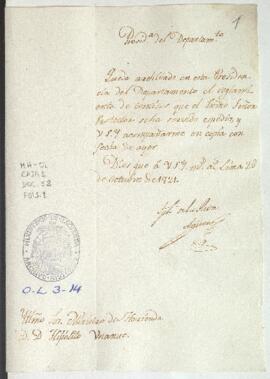 1
Presid.a del Departam.to
Queda archivado en esta Presiden
cia del Departamento el reglam
ento de que el Exmo Señor
Protector se ha servido expedir, y
V.S.Y. acompañarme en copia con
fecha de ayer.
Dios gue á V.S.Y. m.s a.s Lima 20
de octubre de 1821.
José de la Riva
Aguero
MH-OL
CAJA 1
DOC. 52
FOLS. 1
O-L 3-14
Yltmo. Sor. Ministro de Hacienda
D. D. Hipólito Unanue.